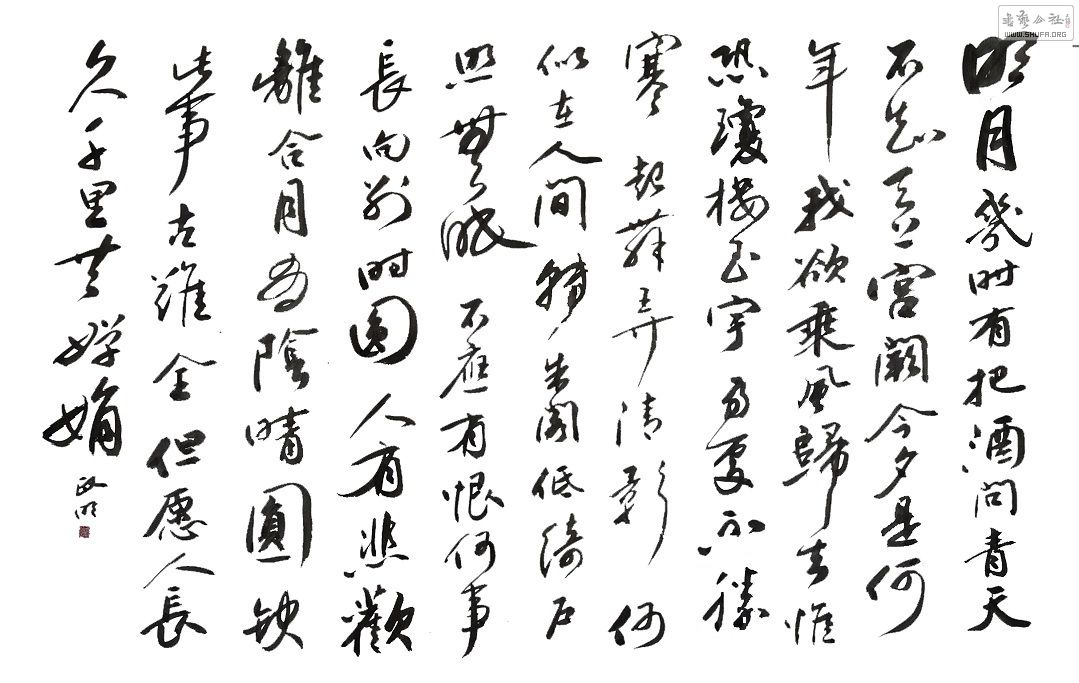 明月幾时有把酒问青天
不知天上宫阙今夕是何
年我欲乘风歸去惟
恐瓊楼玉宇高處不勝
寒起舞弄清影何
似在人间轉朱阁低绮户
照無眠不應有恨何事
長向别时圆人有悲歡
離合月有陰晴圓缺
此事古難全但愿人長
久千里共嬋娟
公社
WWW.SHUFA.ORG